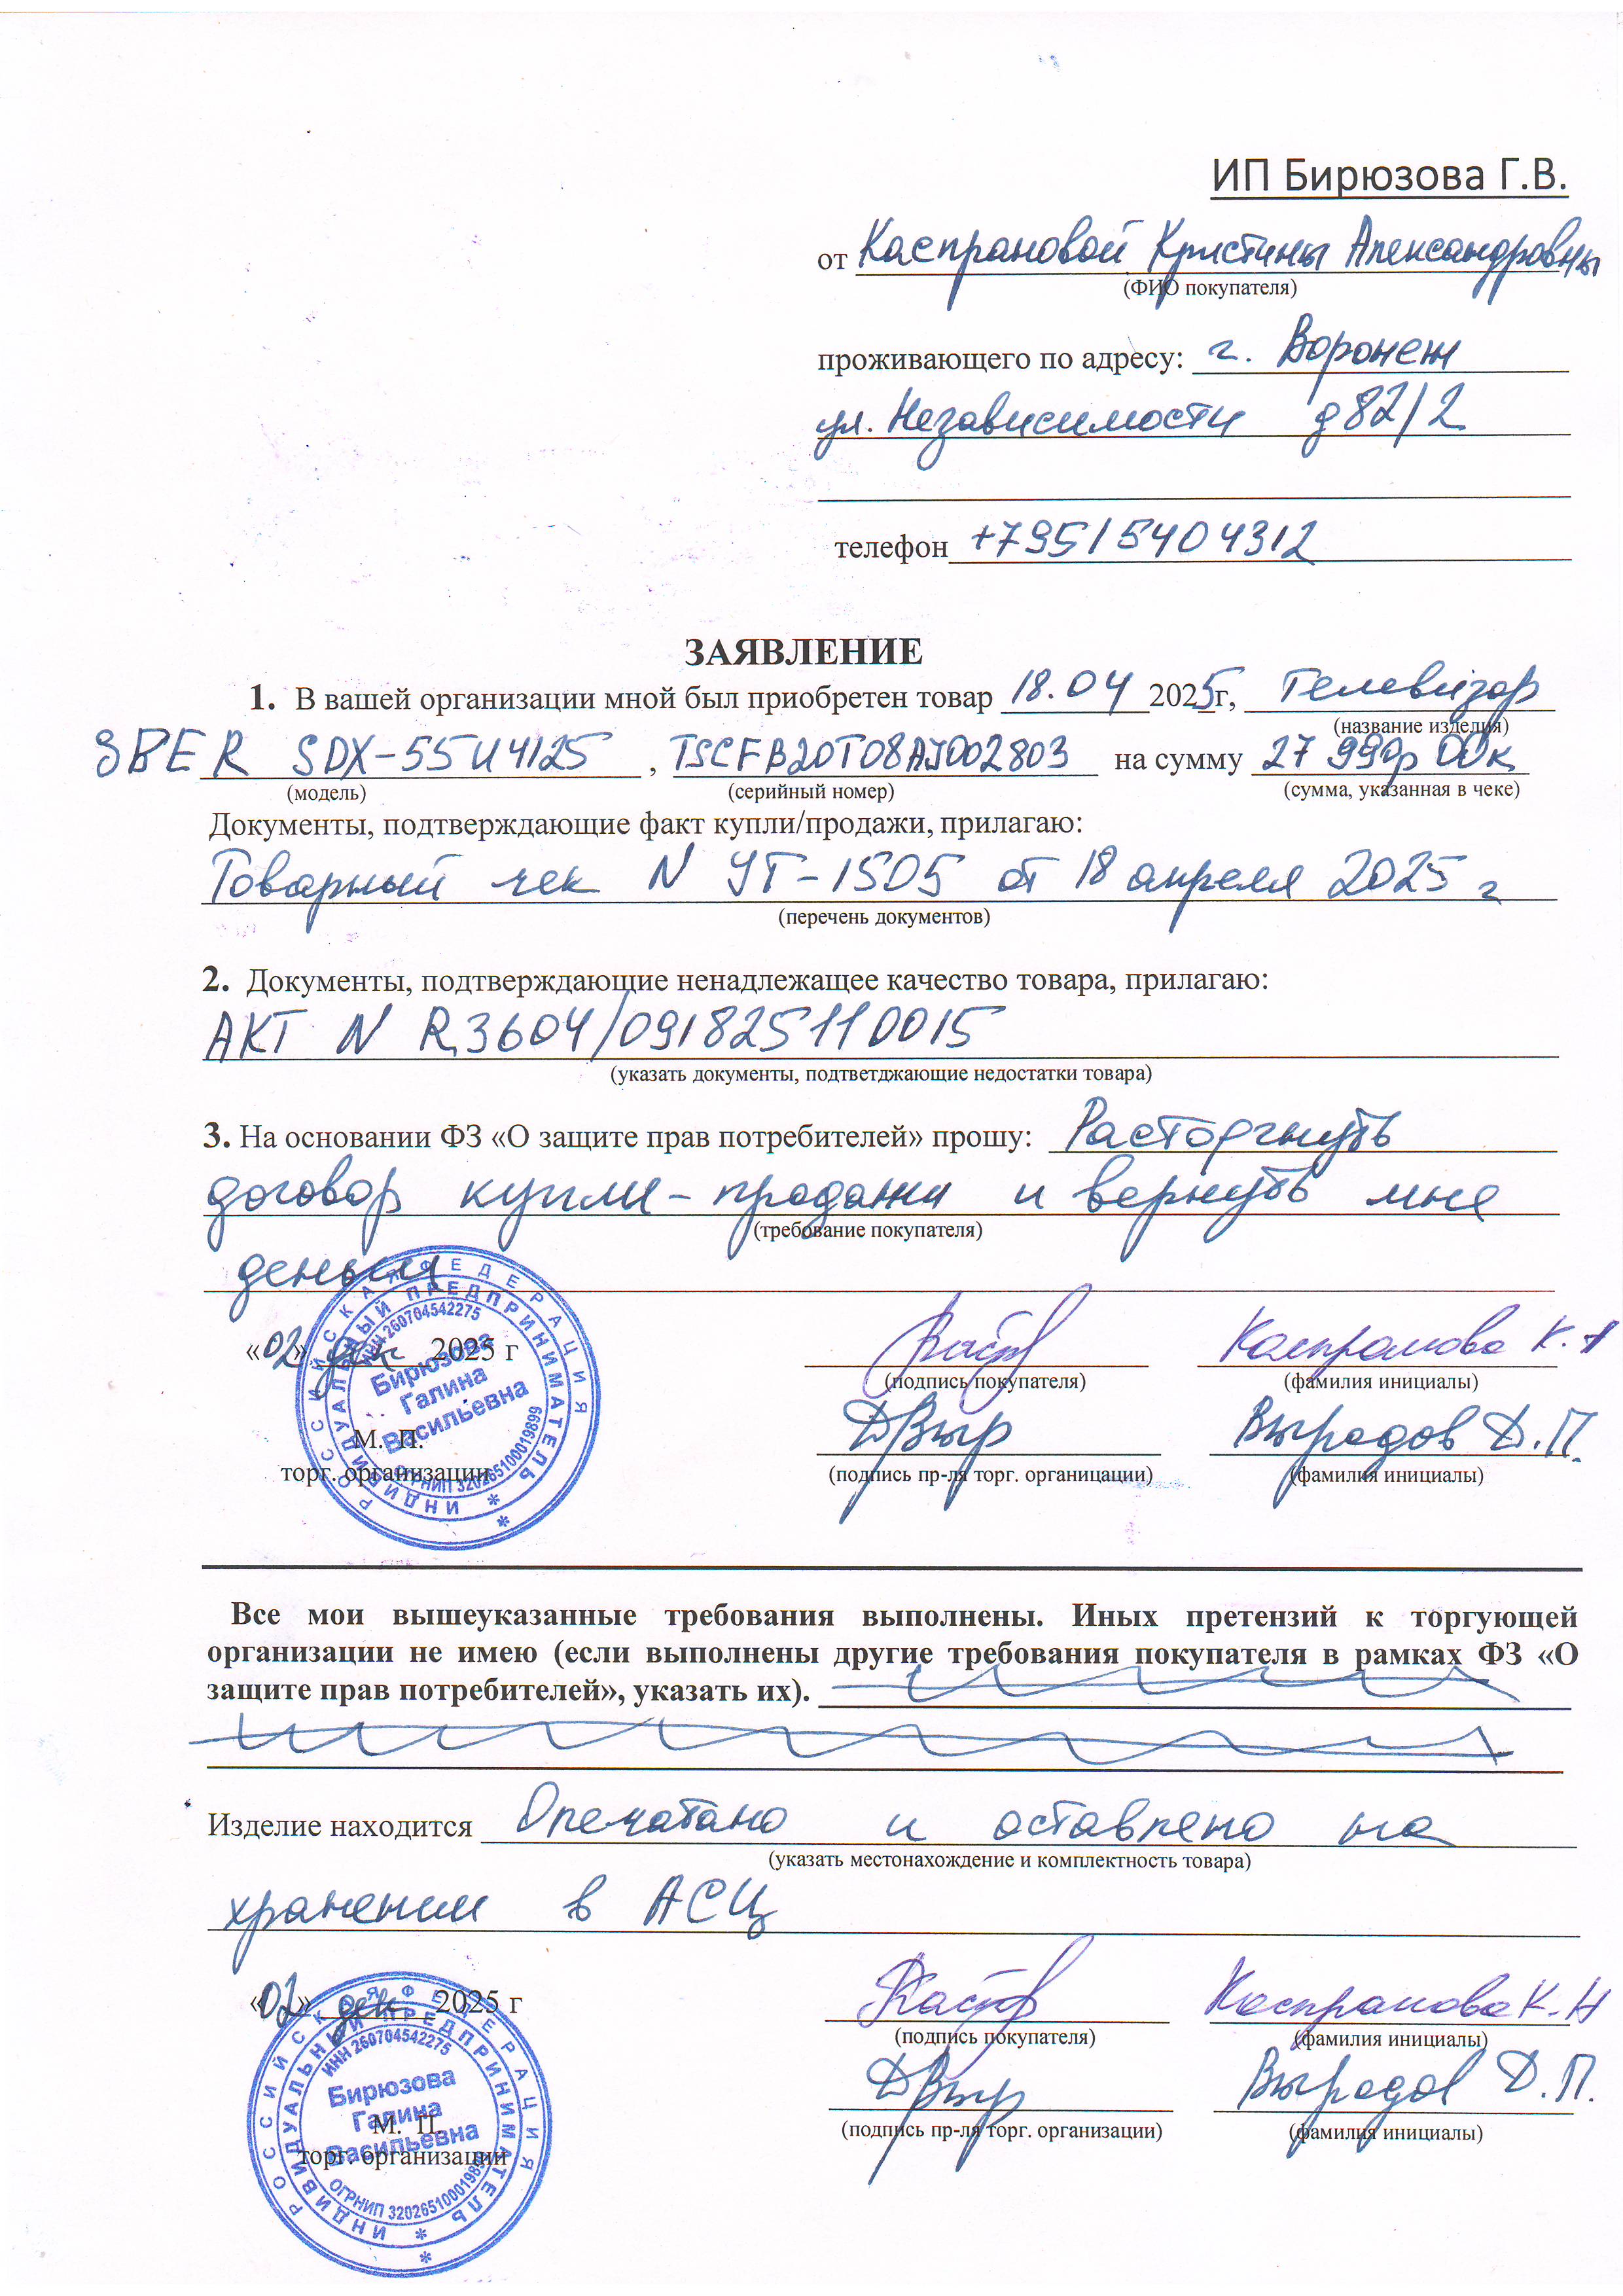 ИП Бирюзова Г.В.
от Каспрановой Кристины Александровны
(ФИО покупателя)
проживающего по адресу: г. Воронеж
ул. Независимости д 82/2
телефон +79515404312
ЗАЯВЛЕНИЕ
1. В вашей организации мной был приобретен товар 18.04 2025г, Телевизор
(название изделия)
SBER SDX-55U4125 , TSCFB20T08AJ002803 на сумму 27 999р 00к
(модель) (серийный номер) (сумма, указанная в чеке)
Документы, подтверждающие факт купли/продажи, прилагаю:
Товарный чек N УТ-1505 от 18 апреля 2025 г
(перечень документов)
2. Документы, подтверждающие ненадлежащее качество товара, прилагаю:
АКТ N R3604/091825110015
(указать документы, подтветджающие недостатки товара)
3. На основании ФЗ «О защите прав потребителей» прошу: Расторгнуть
договор купли-продажи и вернуть мне
(требование покупателя)
деньги
«02» дек 2025 г Каспранова К.А
(подпись покупателя) (фамилия инициалы)
ДВыр Выродов Д.П.
М. П.
торг. организации (подпись пр-ля торг. органицации) (фамилия инициалы)
РОССИЙСКАЯ ФЕДЕРАЦИЯ
ИНДИВИДУАЛЬНЫЙ ПРЕДПРИНИМАТЕЛЬ
ИНН 260704542275
Бирюзова
Галина
Васильевна
ОГРНИП 320265100019899
Все мои вышеуказанные требования выполнены. Иных претензий к торгующей
организации не имею (если выполнены другие требования покупателя в рамках ФЗ «О
защите прав потребителей», указать их).
Изделие находится Опечатано и оставлено на
(указать местонахождение и комплектность товара)
хранении в АСЦ
«02» дек 2025 г Каспранова К.А
(подпись покупателя) (фамилия инициалы)
ДВыр Выродов Д.П.
М. П.
торг. организации (подпись пр-ля торг. организации) (фамилия инициалы)
РОССИЙСКАЯ ФЕДЕРАЦИЯ
ИНДИВИДУАЛЬНЫЙ ПРЕДПРИНИМАТЕЛЬ
ИНН 260704542275
Бирюзова
Галина
Васильевна
ОГРНИП 320265100019899